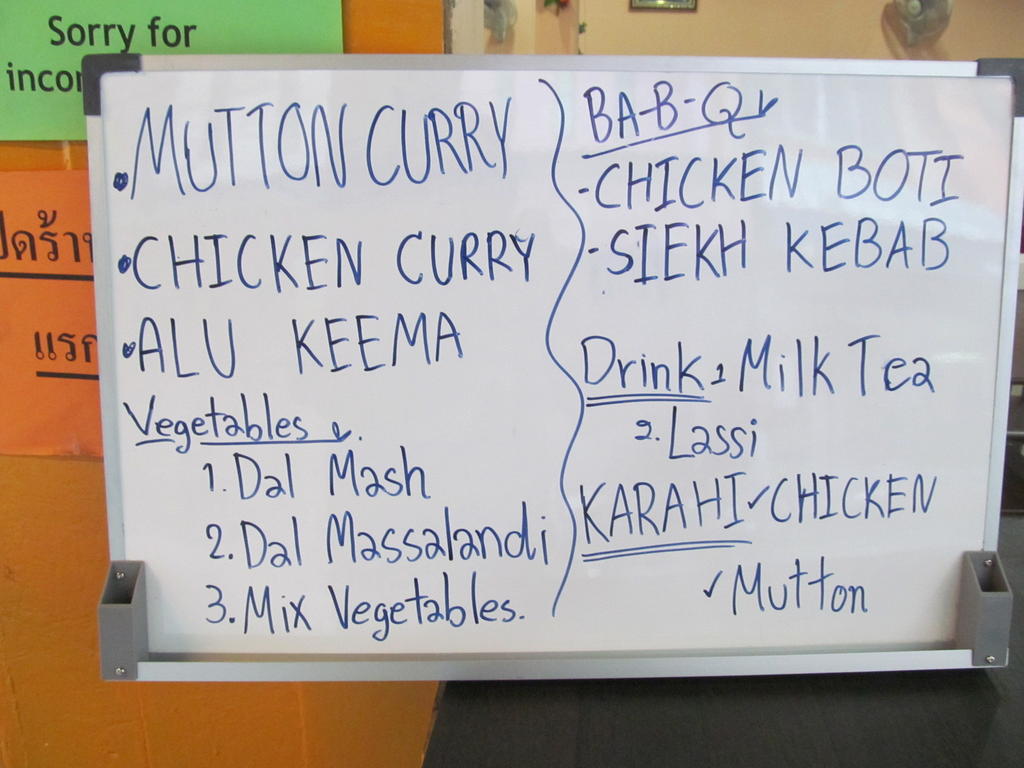 Sorry for
MUTTON CURRY
CHICKEN CURRY
ALU KEEMA
Vegetables
1. Dal Mash
2. Dal Massalandi
3. Mix Vegetables.
BA-B-Q
-CHICKEN BOTI
-SIEKH KEBAB
Drink 1 Milk Tea
2. Lassi
KARAHI ✓ CHICKEN
✓ Mutton